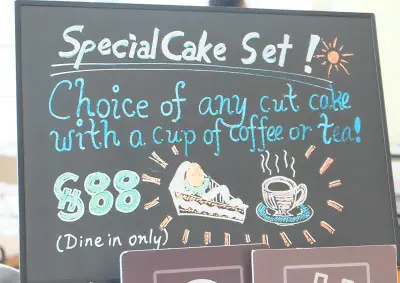 Special Cake Set!
Choice of any cut cake
with a cup of coffee or tea!
(Dine in only)